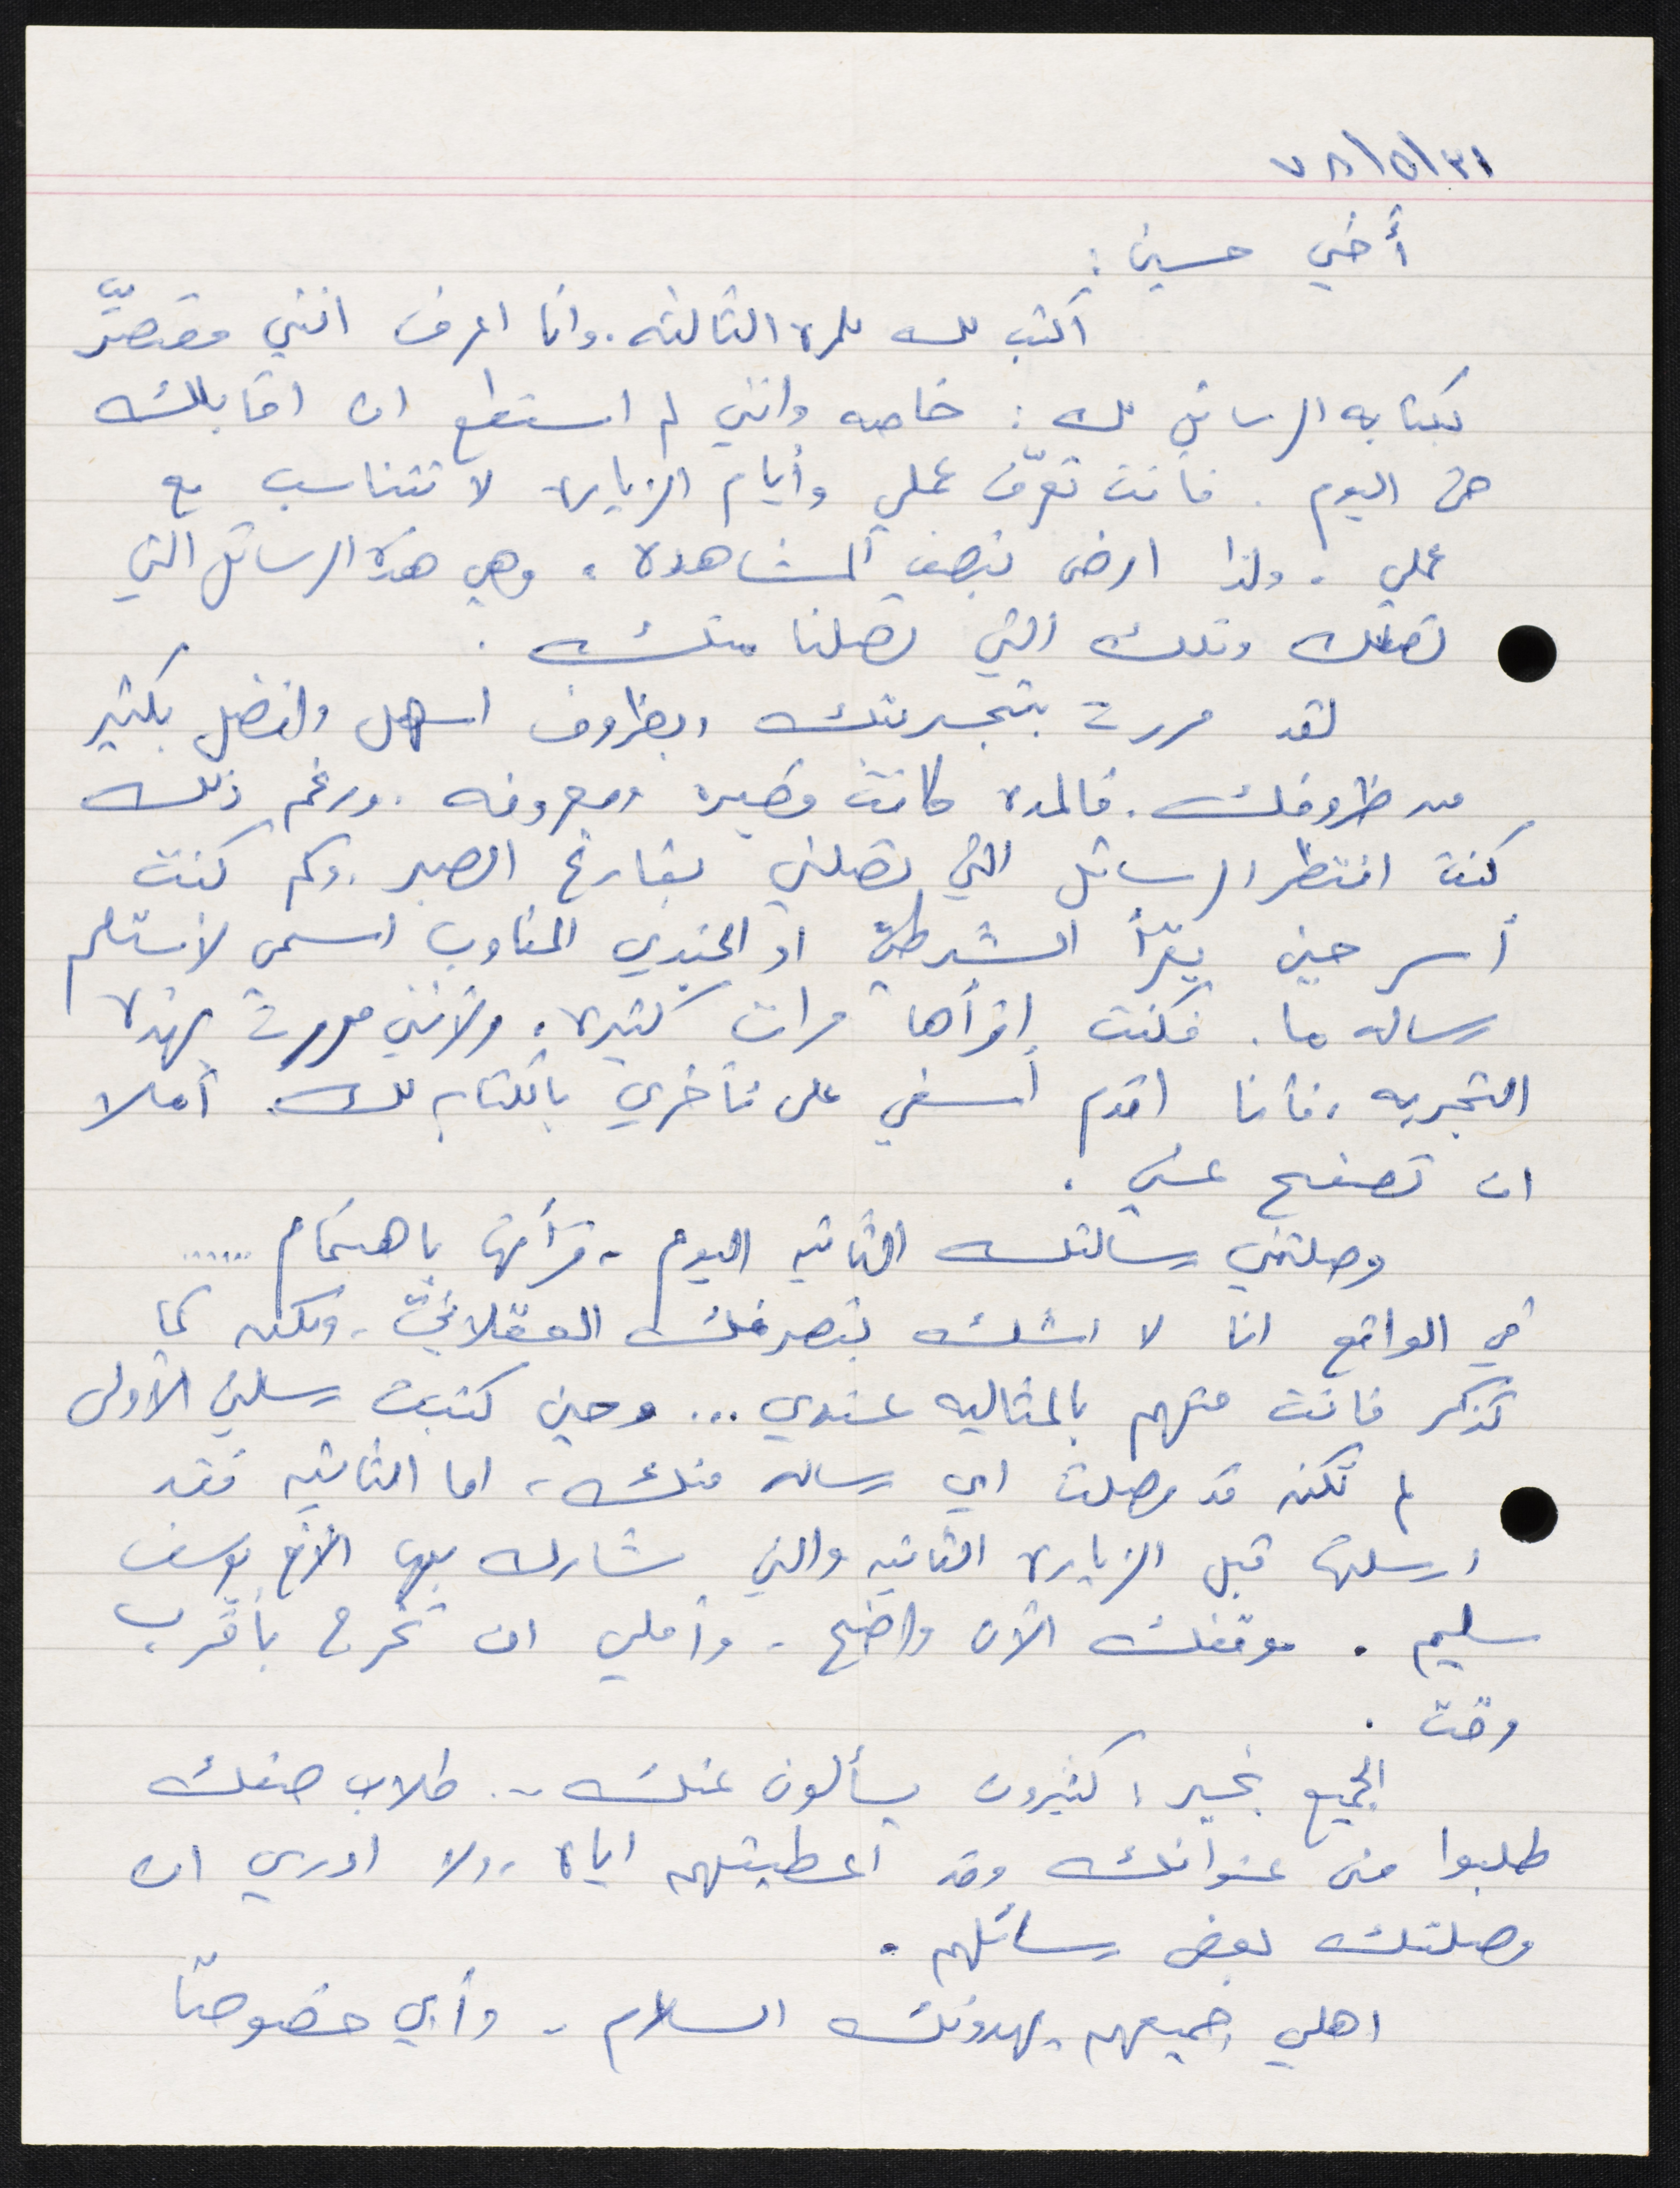 ٧٨/٥/٣١
أخي حسين :
اكتب لك للمرة الثالثه . وانا اعرف انني مقصّر
بكتابه الرسائل لك : خاصه وانني لم استطع ان اقابلك
حتى اليوم . فأنت تعرف عملي وأيام الزيارة لا تتناسب مع
عملي . ولذا ارضى بنصف المشاهدة ، وهي هذه الرسائل التي
تصلك وتلك التي تصلنا منك .
لقد مررت بتجربتك وبظروف اسهل وافضل بكثير
من ظروفك . فالمدة كانت قصيره ومعروفه . ورغم ذلك
كنت انتظر الرسائل التي تصلني بفارغ الصبر . وكم كنت
أسر حين يقرأ الشرطي او الجندي المناوب اسمي لأستلم
رساله ما . فكنت اقرأها مرات كثيرة ، ولأنني مررت بهذه
التجربه ، فأنا اقدم أسفي على تأخري بالكتابه لك . آملا
ان تصفح عني .
وصلتني رسالتك الثانيه اليوم - قرأتها باهتمام ......
في الواقع انا لا اشك بتصرفك العقلاني - ولكن كما
تذكر فانت متهم بالمثاليه عندي ... وحين كتبت رسلتي الأولى
لم تكن قد وصلت اي رساله منك ، اما الثانيه فقد
ارسلتها قبل الزيارة الثانيه والتي شارك بها الأخ يوسف
سليم . موقفك الآن واضح - وأملي ان تخرج بأقرب
وقت .
الجميع بخير ، كثيرون يسألون عنك - . طلاب صفك
طلبوا مني عنوانك وقد اعطيتهم اياه ، ولا ادري ان
وصلتك بعض رسائلهم .
اهلي جميعهم يهدونك السلام - وأبي خصوصًا